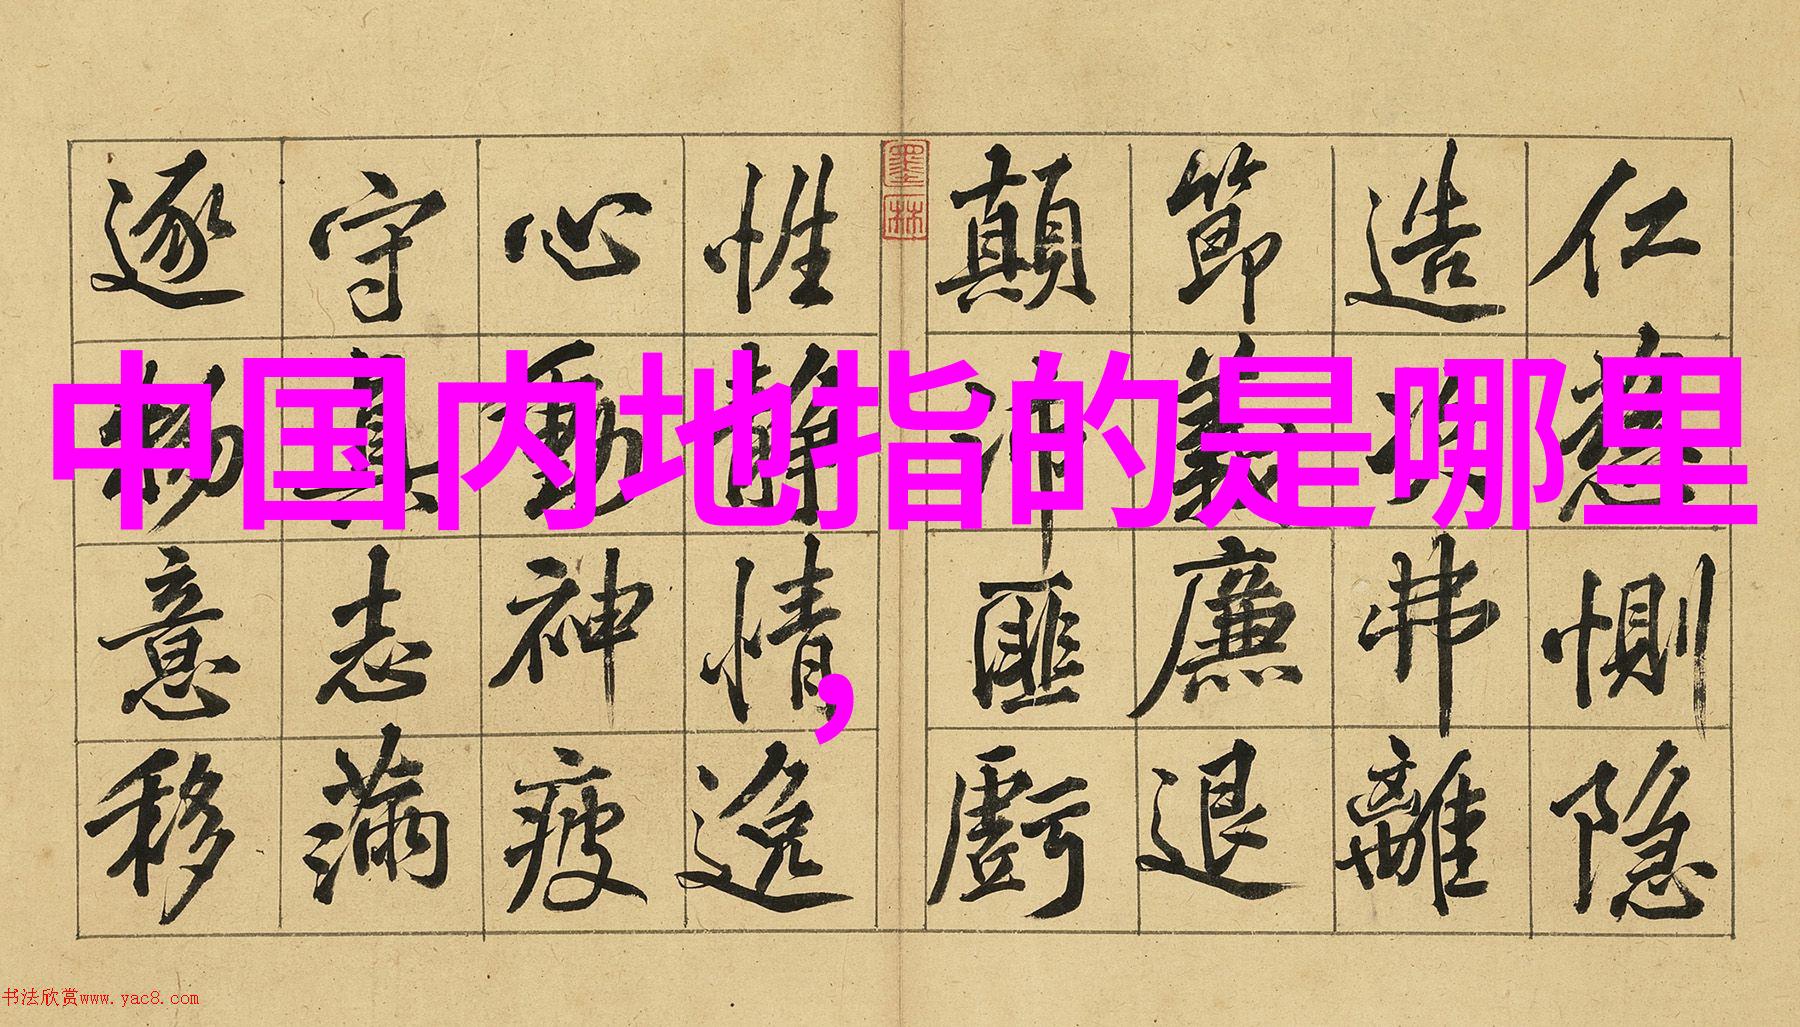 中国内地指的是哪里
，
仁慈惻隐
造次弗離
節義廉退
顛沛匪虧
墨林
性静情逸
心動神疲
守真志滿
逐物意移
书法欣赏www.yac8.com